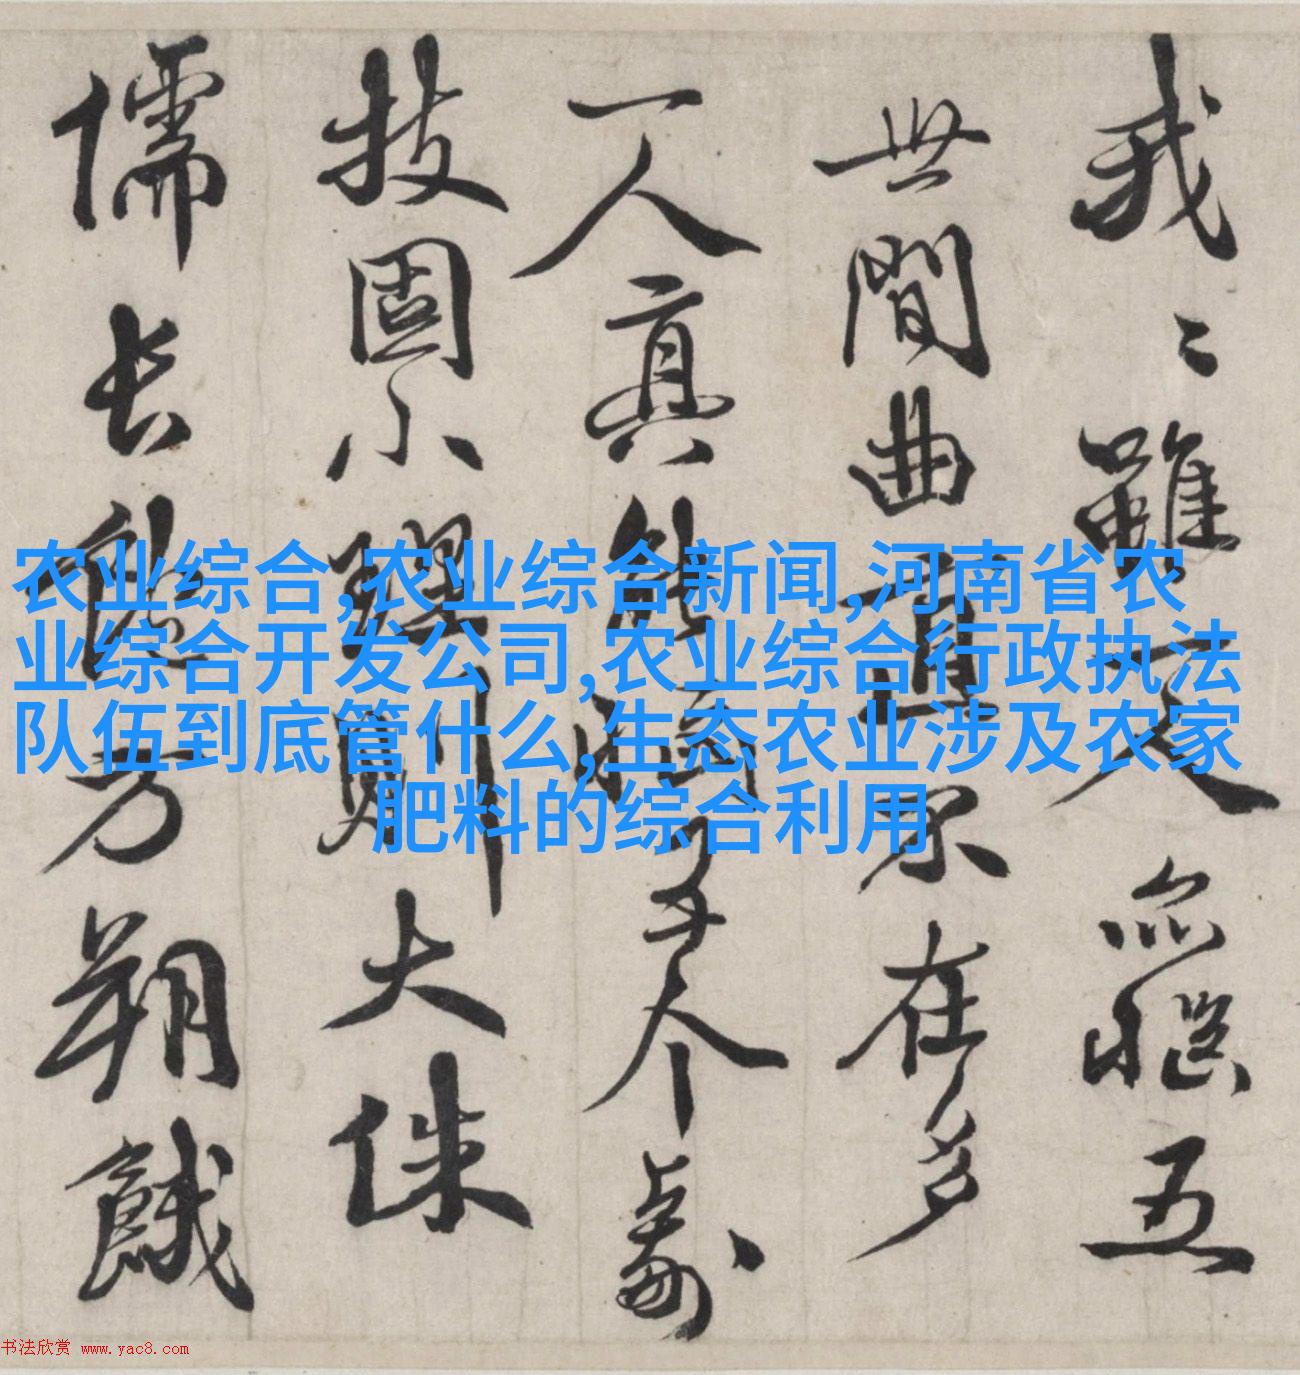 农业综合,农业综合新闻,河南省农
业综合开发公司,农业综合行政执法
队伍到底管什么,生态农业涉及农家
肥料的综合利用
我〻雖五
世間曲直不在多
一人真能勝千个
技固小理則大侏
儒长方朔餓
书法欣赏 www.yac8.com